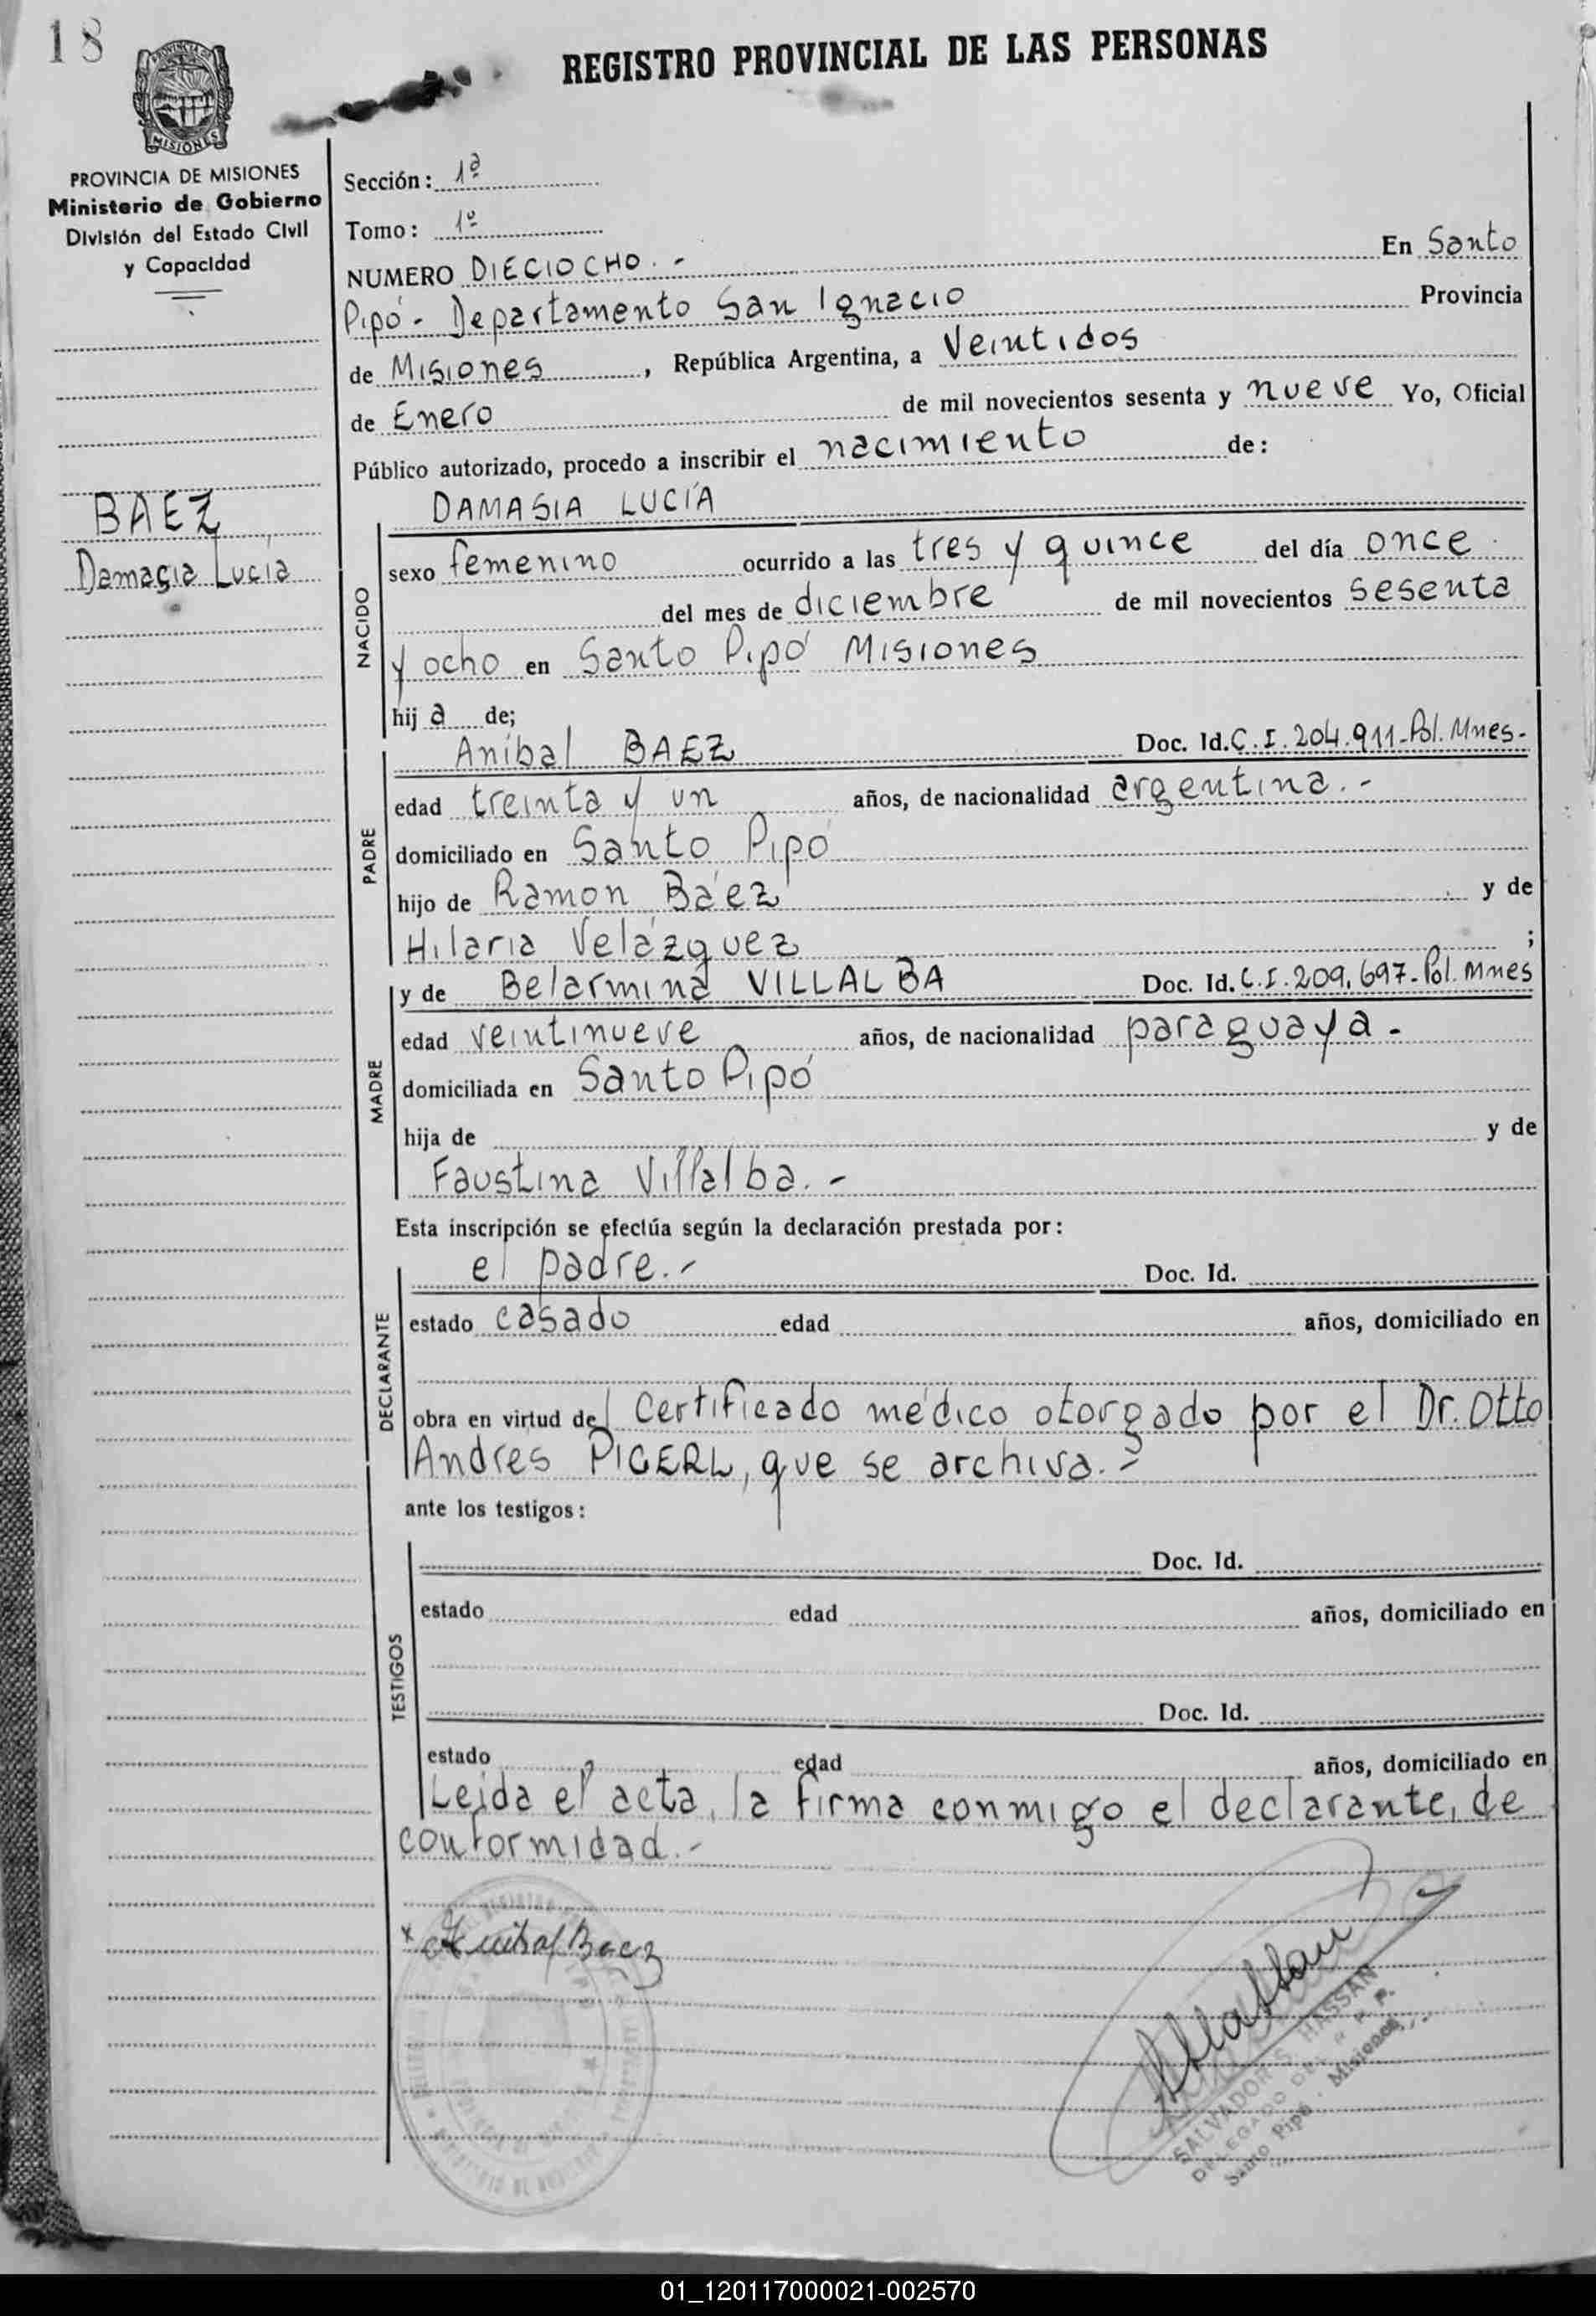 18
REGISTRO PROVINCIAL DE LAS PERSONAS
MISIONES
PROVINCIA DE MISIONES
Ministerio de Gobierno
División del Estado Civil
y Capacidad
BAEZ
Damasia Lucía
Sección: 1ª
Tomo: 1º
NUMERO DIECIOCHO.- En Santo
Pipó - Departamento San Ignacio Provincia
de Misiones, República Argentina, a Veintidos
de Enero de mil novecientos sesenta y nueve Yo, Oficial
Público autorizado, procedo a inscribir el nacimiento de:
DAMASIA LUCÍA
NACIDO
sexo femenino ocurrido a las tres y quince del día once
del mes de diciembre de mil novecientos sesenta
y ocho en Santo Pipó Misiones
hija de;
PADRE
Aníbal BAEZ Doc. Id. C.I. 204.911-Pol. Mnes-
edad treinta y un años, de nacionalidad argentina.-
domiciliado en Santo Pipó
hijo de Ramon Báez y de
Hilaria Velázquez ;
MADRE
y de Belarmina VILLALBA Doc. Id. C.I. 209.697-Pol. Mnes
edad veintinueve años, de nacionalidad paraguaya-
domiciliada en Santo Pipó
hija de y de
Faustina Villalba.-
Esta inscripción se efectúa según la declaración prestada por:
DECLARANTE
el padre.- Doc. Id.
estado casado edad años, domiciliado en
obra en virtud del Certificado médico otorgado por el Dr. Otto
Andres PIGERL, que se archiva.-
ante los testigos:
TESTIGOS
Doc. Id.
estado edad años, domiciliado en
Doc. Id.
estado edad años, domiciliado en
Leida el acta, la firma conmigo el declarante, de
conformidad.-
x Anibal Baez
SALVADOR S. HASSAN
DELEGADO DEL R. P. P.
Santo Pipó - Misiones
01_120117000021-002570